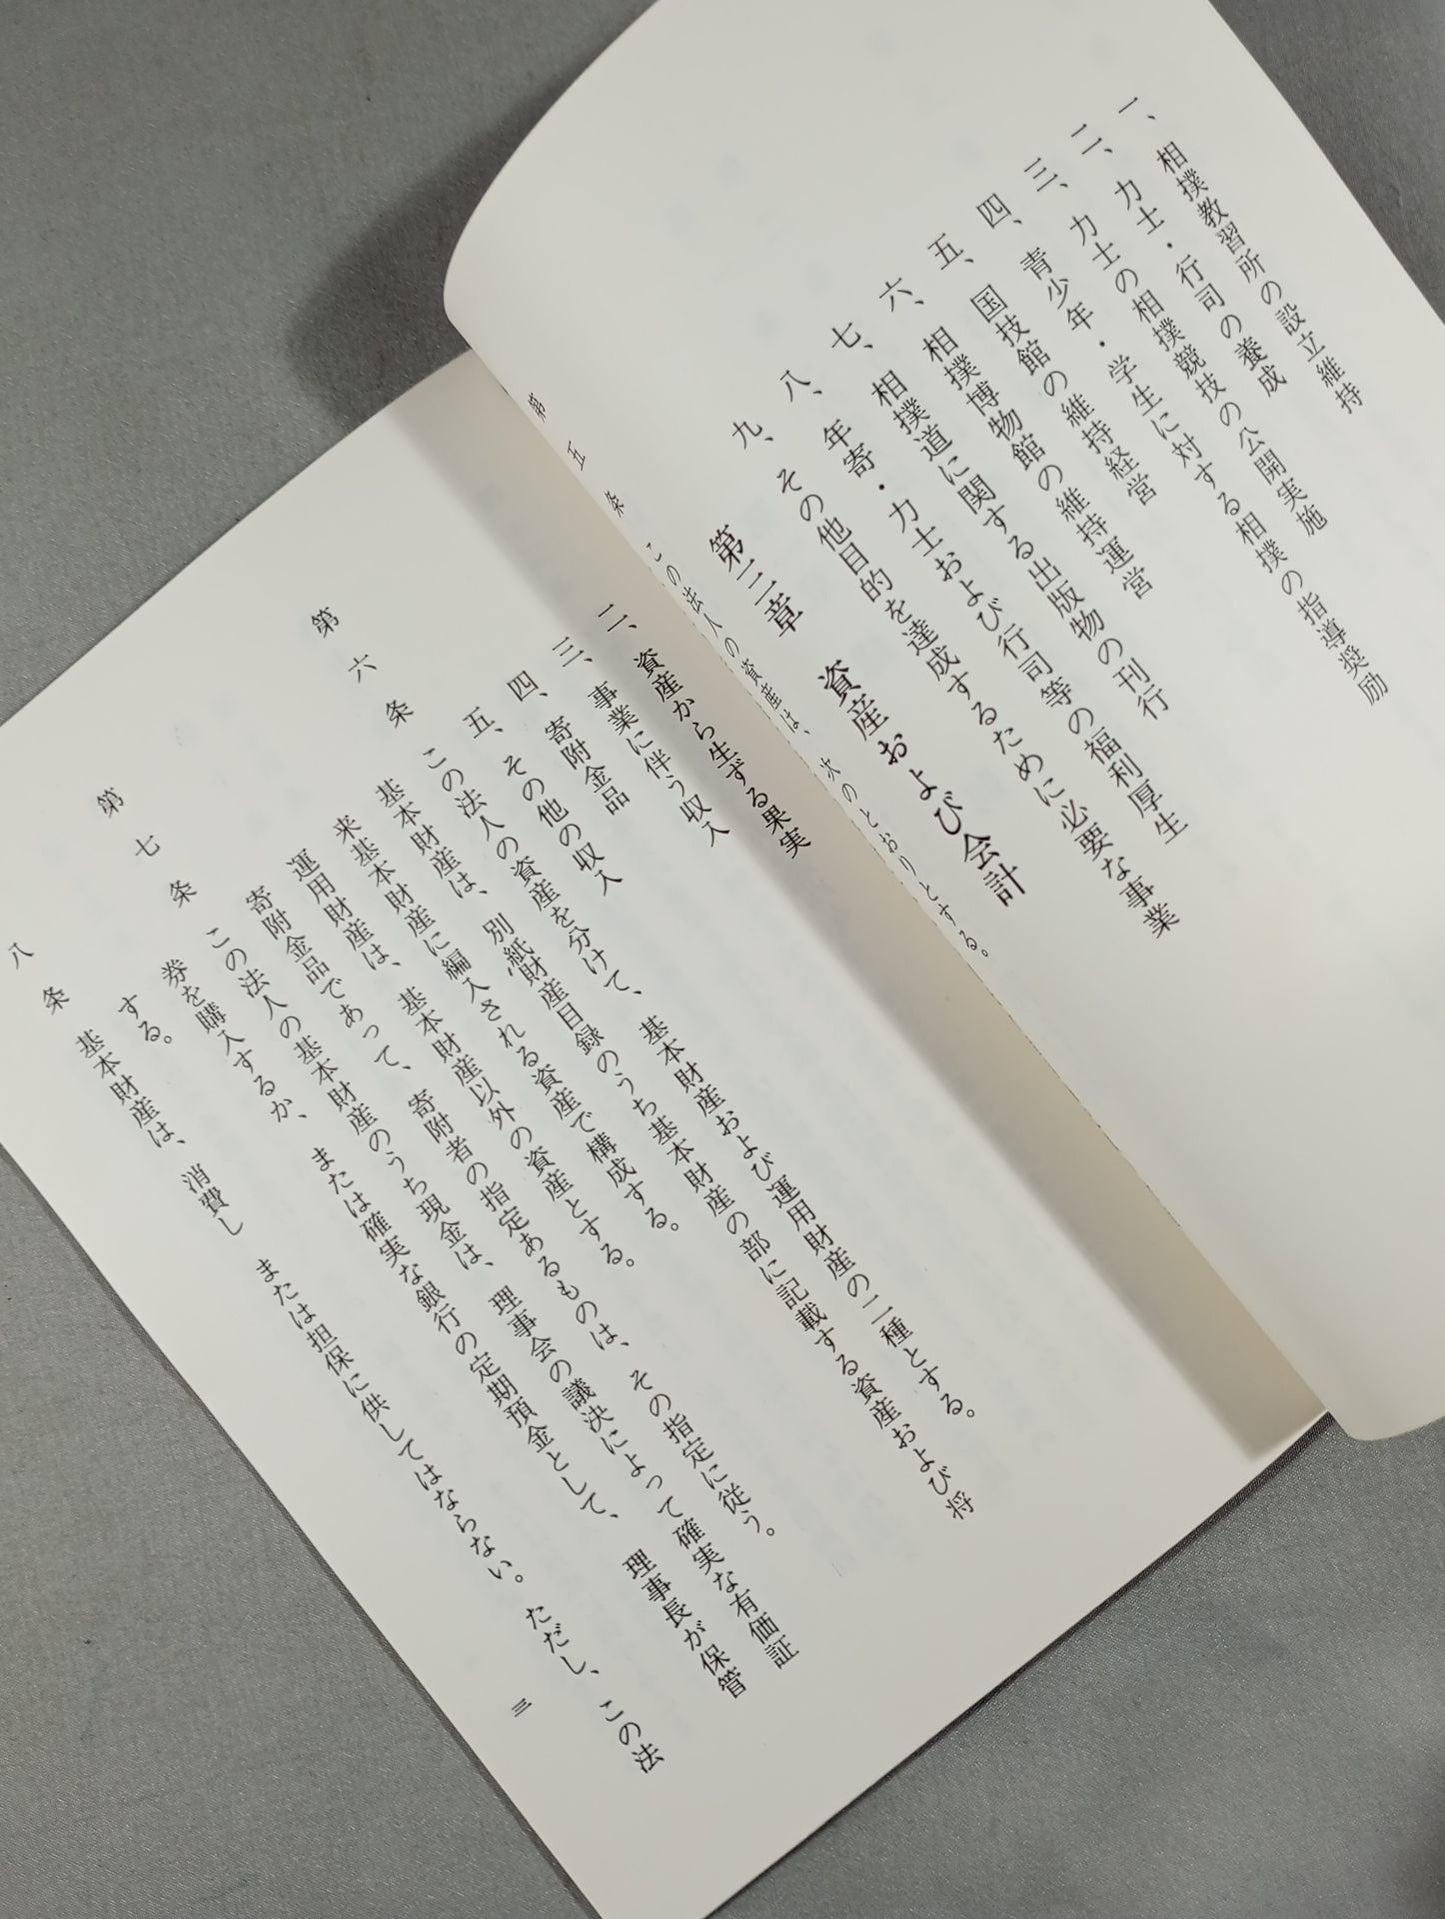 一、相撲教習所の設立維持
二、力士・行司の養成
三、力士の相撲競技の公開実施
四、青少年・学生に対する相撲の指導奨励
五、国技館の維持経営
六、相撲博物館の維持運営
七、相撲道に関する出版物の刊行
八、年寄・力士および行司等の福利厚生
九、その他目的を達成するために必要な事業
第三章 資産および会計
第五条 この法人の資産は、次のとおりとする。
二、資産から生ずる果実
三、事業に伴う収入
四、寄附金品
五、その他の収入
第六条 この法人の資産を分けて、基本財産および運用財産の二種とする。
基本財産は、別紙財産目録のうち基本財産の部に記載する資産および将
来基本財産に編入される資産で構成する。
運用財産は、基本財産以外の資産とする。
寄附金品であって、寄附者の指定あるものは、その指定に従う。
第七条 この法人の基本財産のうち現金は、理事会の議決によって確実な有価証
券を購入するか、または確実な銀行の定期預金として、理事長が保管
する。
八条 基本財産は、消費し または担保に供してはならない。ただし、この法
三